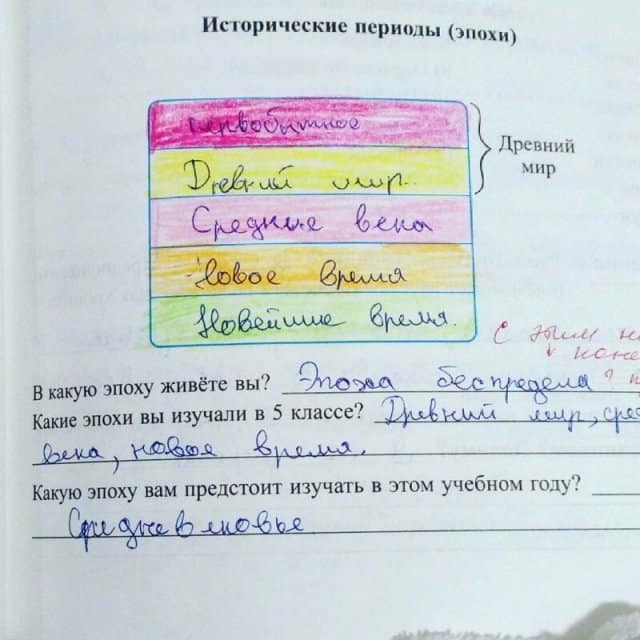 Исторические периоды (эпохи)
первобытное
Древний мир.
Древний
мир
Средние века
Новое время
Новейшие время.
С этим не
В какую эпоху живёте вы? Эпоха беспредела
Какие эпохи вы изучали в 5 классе? Древний мир, сред
века, новое время.
Какую эпоху вам предстоит изучать в этом учебном году?
Средневековье